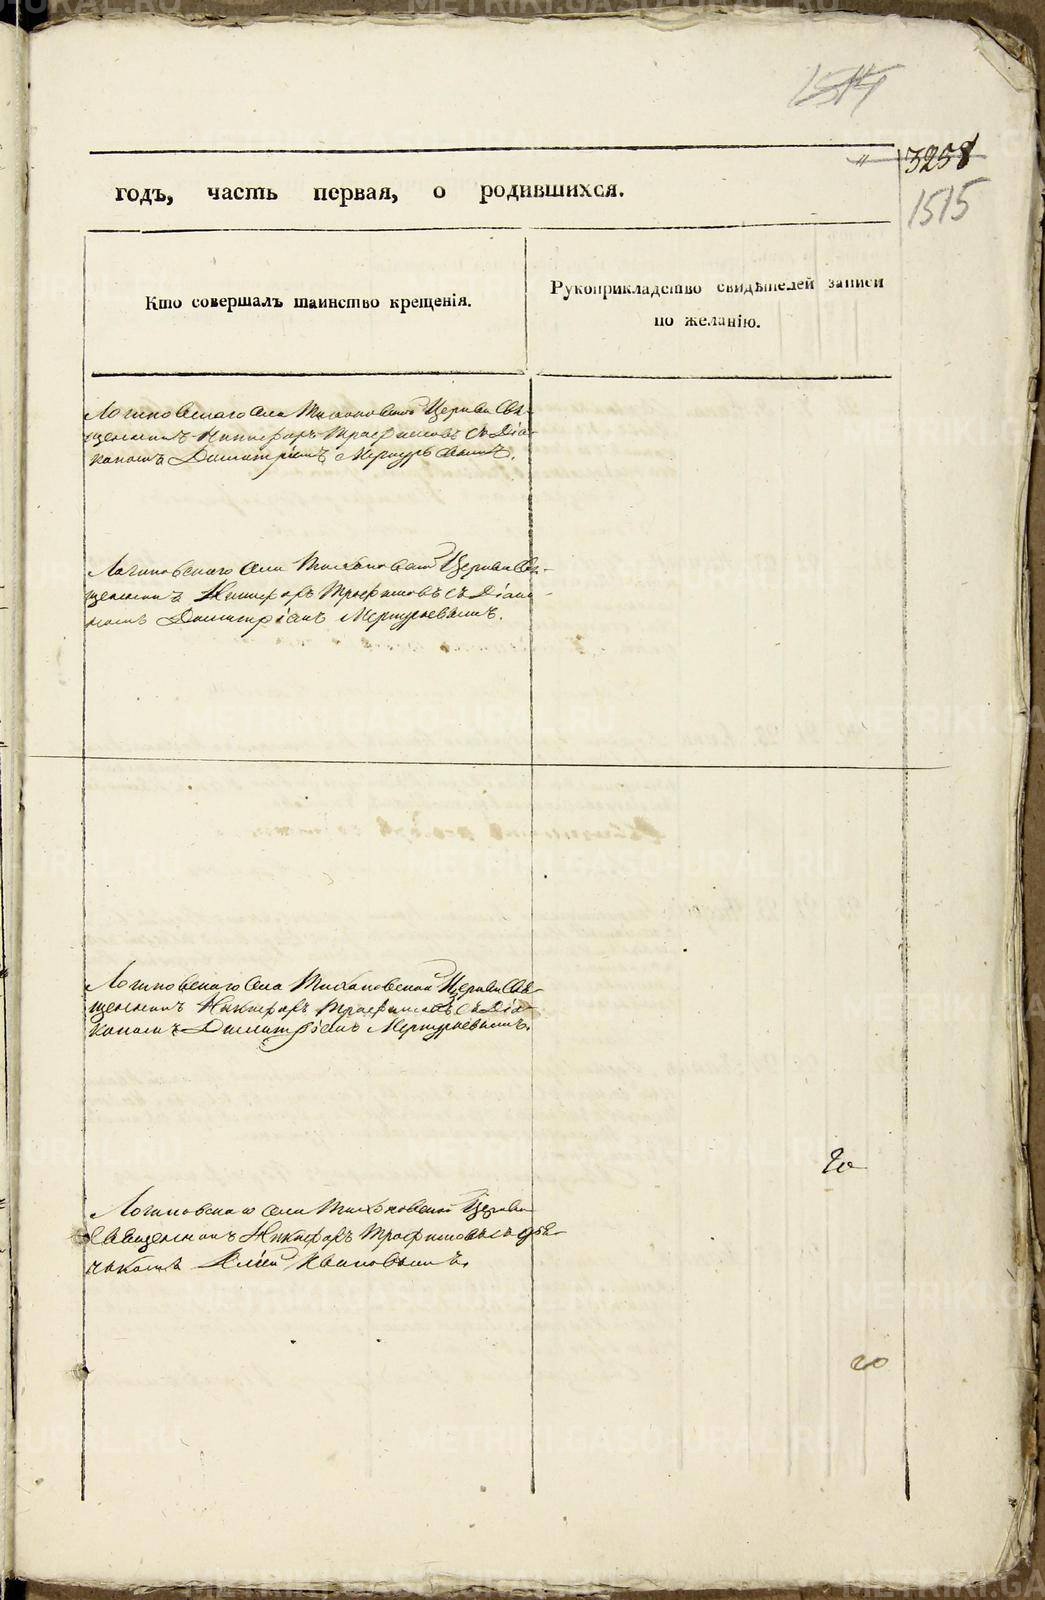 1514
3258
1515
годъ, часть первая, о родившихся.
Кто совершалъ таинство крещенія.
Рукоприкладство свидѣтелей записи
по желанію.
Логиновскаго села Тихоновской Церкви Свя-
щенникъ Никифоръ Трофимовъ съ Діа-
кономъ Димитріемъ Меркурьевымъ.
Логиновскаго села Тихоновской Церкви Свя-
щенникъ Никифоръ Трофимовъ съ Діако-
номъ Димитріемъ Меркурьевымъ.
Логиновскаго села Тихоновской Церкви Свя-
щенникъ Никифоръ Трофимовъ съ Діа-
кономъ Димитріемъ Меркурьевымъ.
Логиновскаго села Тихоновской Церкви
Священникъ Никифоръ Трофимовъ съ дья-
чкомъ Ивановымъ.
20
METRIKI.GASO-URAL.RU